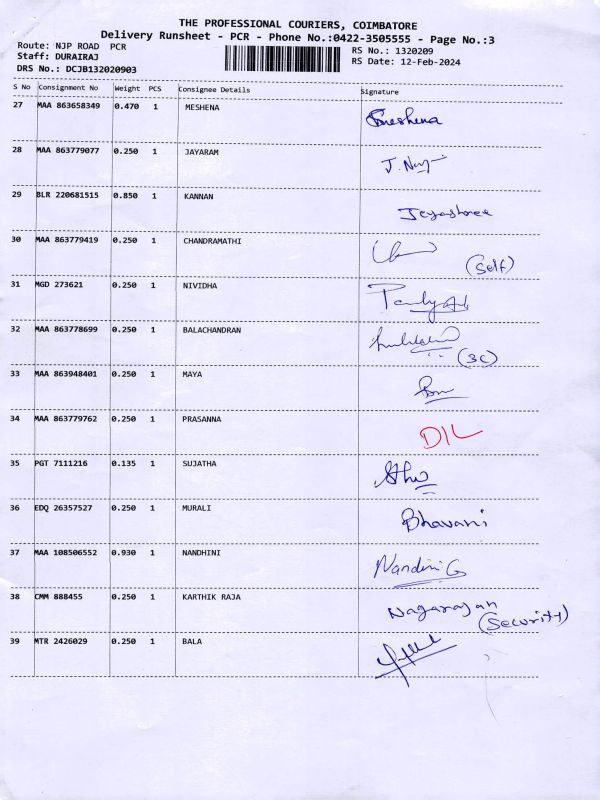 THE PROFESSIONAL COURIERS, COIMBATORE
Delivery Runsheet - PCR - Phone No.:0422-3505555 - Page No.:3
Route: NJP ROAD PCR RS No.: 1320209
Staff: DURAIRAJ RS Date: 12-Feb-2024
DRS No.: DCJB132020903
S No Consignment No Weight PCS Consignee Details Signature
27 MAA 863658349 0.470 1 MESHENA
28 MAA 863779077 0.250 1 JAYARAM
29 BLR 220681515 0.850 1 KANNAN Jeyashree
30 MAA 863779419 0.250 1 CHANDRAMATHI (Self)
31 MGD 273621 0.250 1 NIVIDHA
32 MAA 863778699 0.250 1 BALACHANDRAN (3C)
33 MAA 863948401 0.250 1 MAYA
34 MAA 863779762 0.250 1 PRASANNA D/L
35 PGT 7111216 0.135 1 SUJATHA
36 EDQ 26357527 0.250 1 MURALI Bhavani
37 MAA 108506552 0.930 1 NANDHINI Nandini G
38 CMM 888455 0.250 1 KARTHIK RAJA Nagarajan (Security)
39 MTR 2426029 0.250 1 BALA